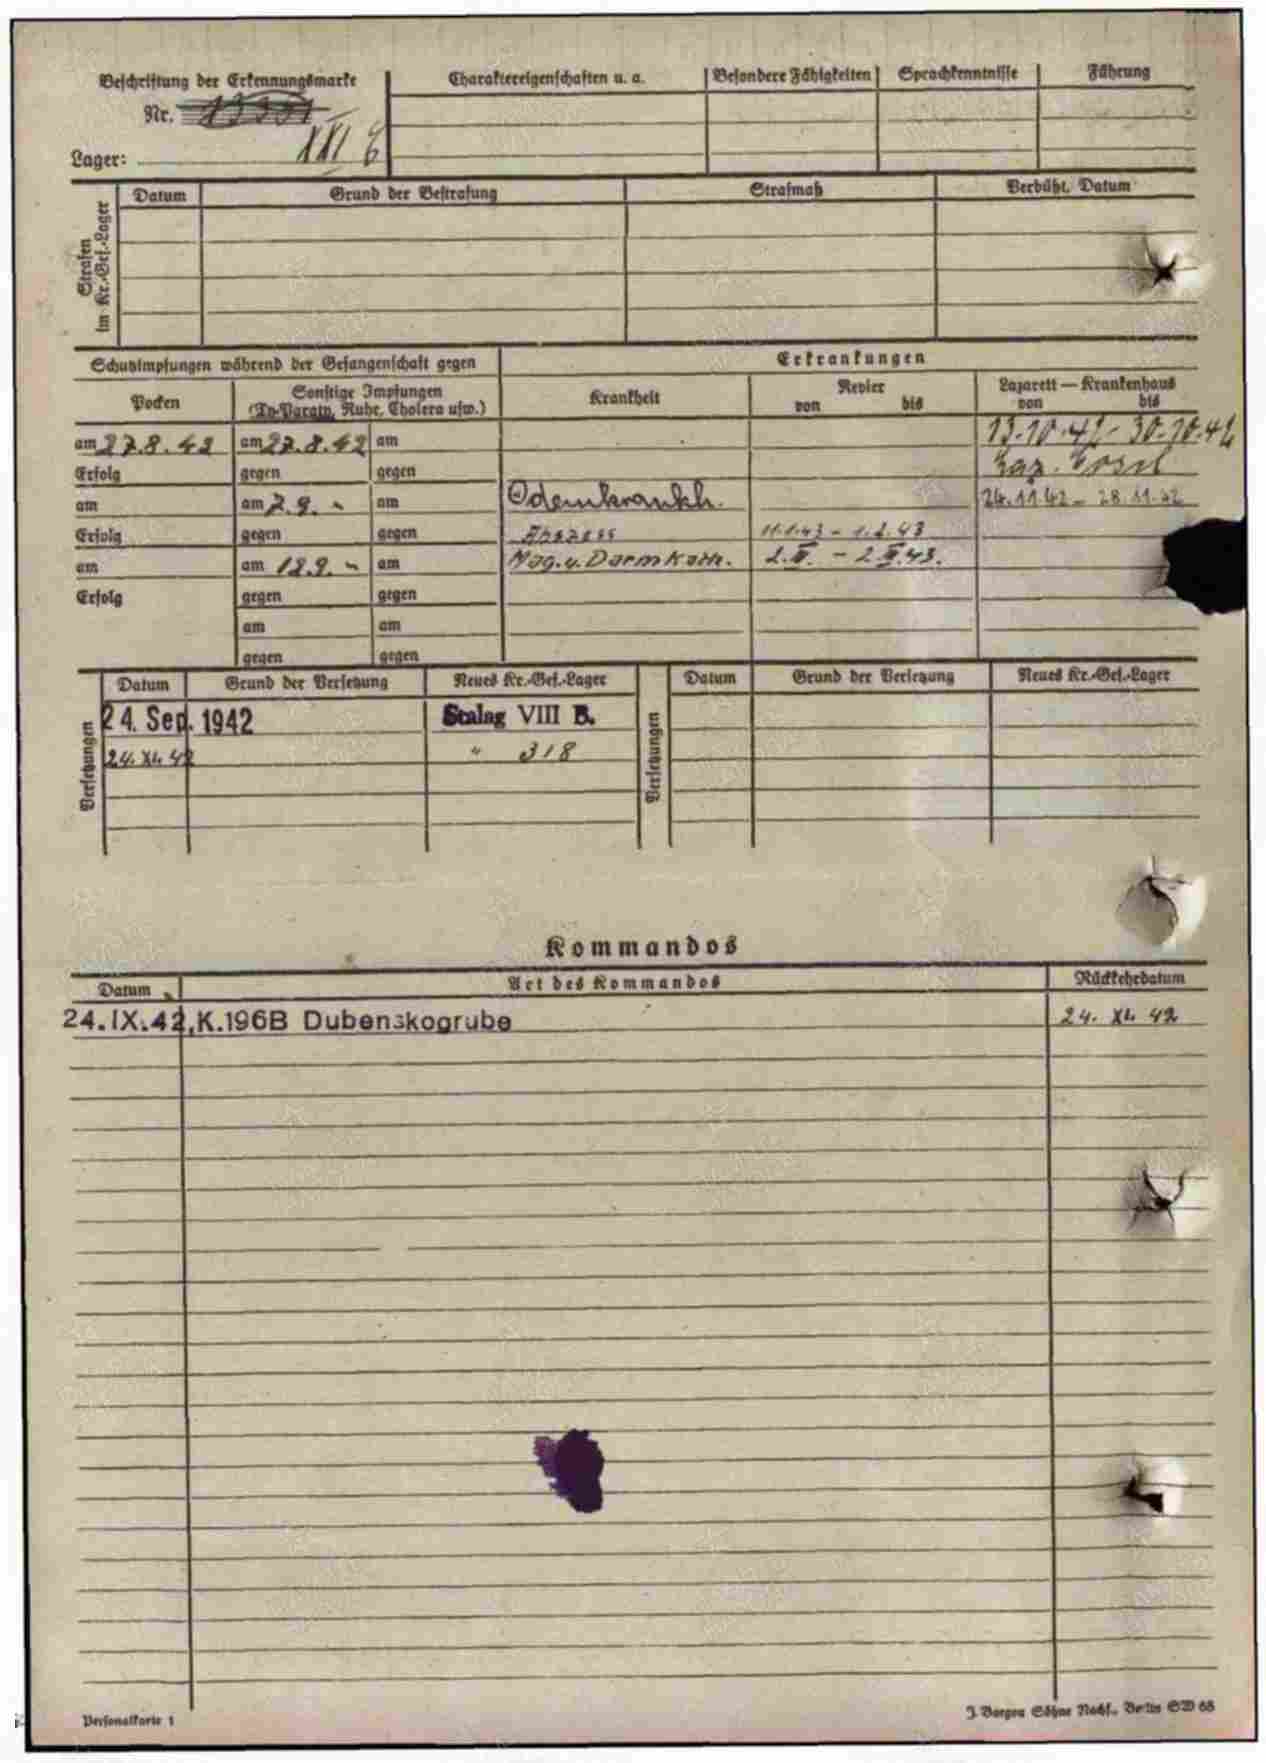 Beschriftung der Erkennungsmarke
Nr.
Lager: XXI
Charaktereigenschaften u. a.
Besondere Fähigkeiten
Sprachkenntnisse
Führung
Strafen im Kr.-Gef.-Lager
Datum
Grund der Bestrafung
Strafmaß
Verbüßt, Datum
Schutzimpfungen während der Gefangenschaft gegen
Erkrankungen
Pocken
Sonstige Impfungen
(Ty-Paraty, Ruhr, Cholera usw.)
Krankheit
Revier
von bis
Lazarett — Krankenhaus
von bis
am 27.8.42 am 27.8.42 am 13.10.42 - 30.10.42
Erfolg gegen gegen Laz. Cosel
am am 7.9. - am Ödemkrankh. 24.11.42 - 28.11.42
Erfolg gegen gegen Abszess 11.1.43 - 1.2.43
am am 18.9. - am Mag. u. Darm Kath. 2.III. - 2.43.
Erfolg gegen gegen
am am
gegen gegen
Versetzungen
Datum Grund der Versetzung Neues Kr.-Gef.-Lager
24. Sep. 1942 Stalag VIII B.
24. XI. 42 " 318
Versetzungen
Datum Grund der Versetzung Neues Kr.-Gef.-Lager
Kommandos
Datum Art des Kommandos Rückkehrdatum
24.IX.42, K.196B Dubenskogrube 24. XI. 42
Personalkarte 1
J. Bargou Söhne Nachf., Berlin SW 68